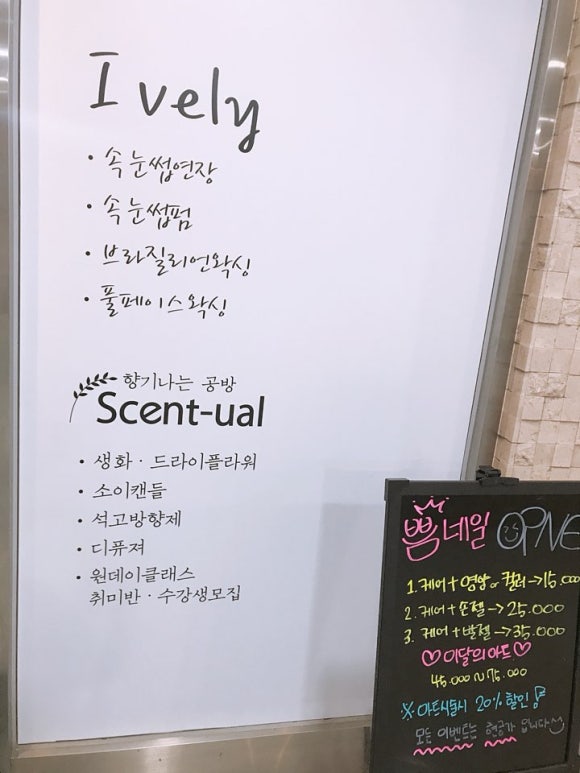 I vely
· 속눈썹연장
· 속눈썹펌
· 브라질리언왁싱
· 풀페이스왁싱
향기나는 공방
Scent-ual
· 생화 · 드라이플라워
· 소이캔들
· 석고방향제
· 디퓨져
· 원데이클래스
취미반 · 수강생모집
쁨네일 OPNE
1. 케어+영양 or 컬러→15.000
2. 케어+손젤→25.000
3. 케어+발젤→35.000
♡이달의아트♡
45.000~75.000
※ 아트시술시 20% 할인
모든 이벤트는 현금가 입니다